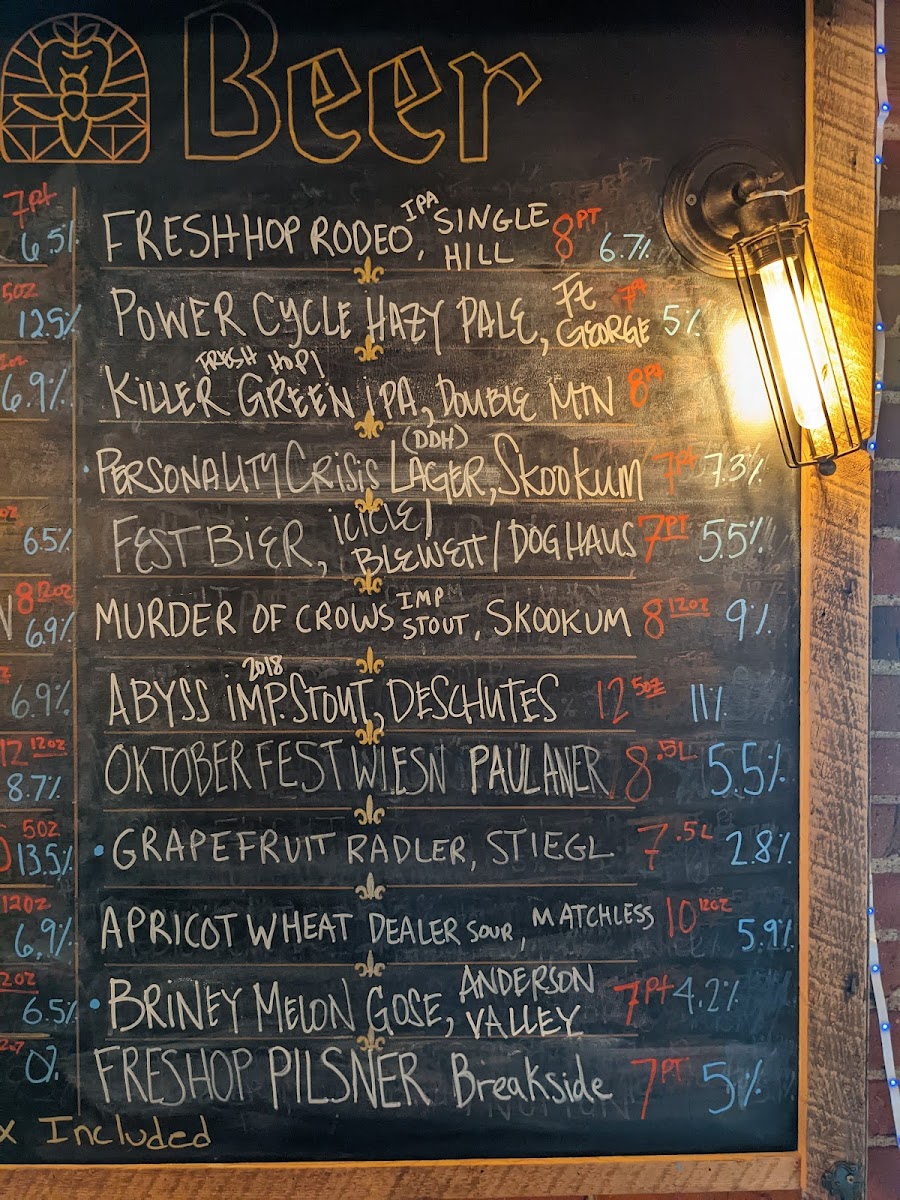 Beer
7pt
6.5%
5oz
12.5%
6.9%
6.5%
8 12oz
6.9%
6.9%
12 12oz
8.7%
5oz
13.5%
12oz
6.9%
6.5%
0%
FRESH HOP RODEO IPA, SINGLE HILL 8PT 6.7%
POWER CYCLE HAZY PALE, Ft GEORGE 7Pt 5%
KILLER GREEN FRESH HOP! IPA, DOUBLE MTN 8Pt
PERSONALITY CRISIS (DDH) LAGER, SKOOKUM 7Pt 7.3%
FESTBIER, iCiCLE/ BLEWETT/DOGHAUS 7PT 5.5%
MURDER OF CROWS IMP STOUT, SKOOKUM 8 12oz 9%
ABYSS 2018 IMP.STOUT, DESCHUTES 12 5oz 11%
OKTOBERFEST WIESN PAULANER 8 .5L 5.5%
GRAPEFRUIT RADLER, STIEGL 7 .5L 2.8%
APRICOT WHEAT DEALER SOUR, MATCHLESS 10 12oz 5.9%
BRINEY MELON GOSE, ANDERSON VALLEY 7Pt 4.2%
FRESHOP PILSNER Breakside 7PT 5%
x Included